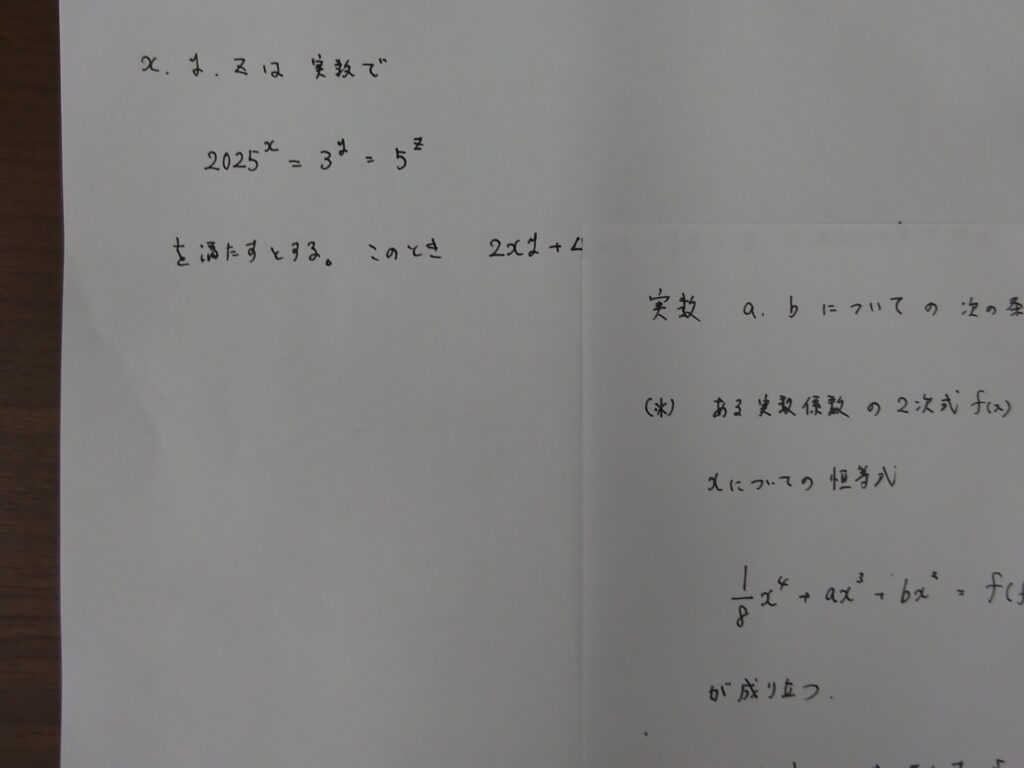 x, y, z は 実数で
2025^x = 3^y = 5^z
を満たすとする。このとき 2xy + 4
実数 a, b についての 次の
(※) ある実数係数の2次式 f(x)
xについての恒等式
1/8 x^4 + ax^3 + bx^2 = f(f
が成り立つ.